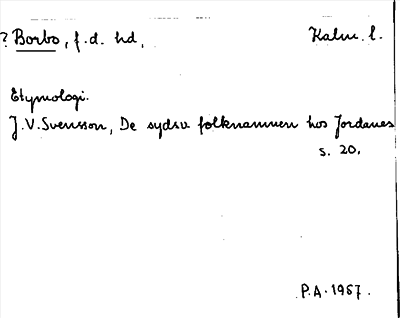 ? Borbo, f.d. hd, Kalm. l.
Etymologi.
J.V. Svensson, De sydsv folknamnen hos Jordanes
s. 20.
P.A. 1967.